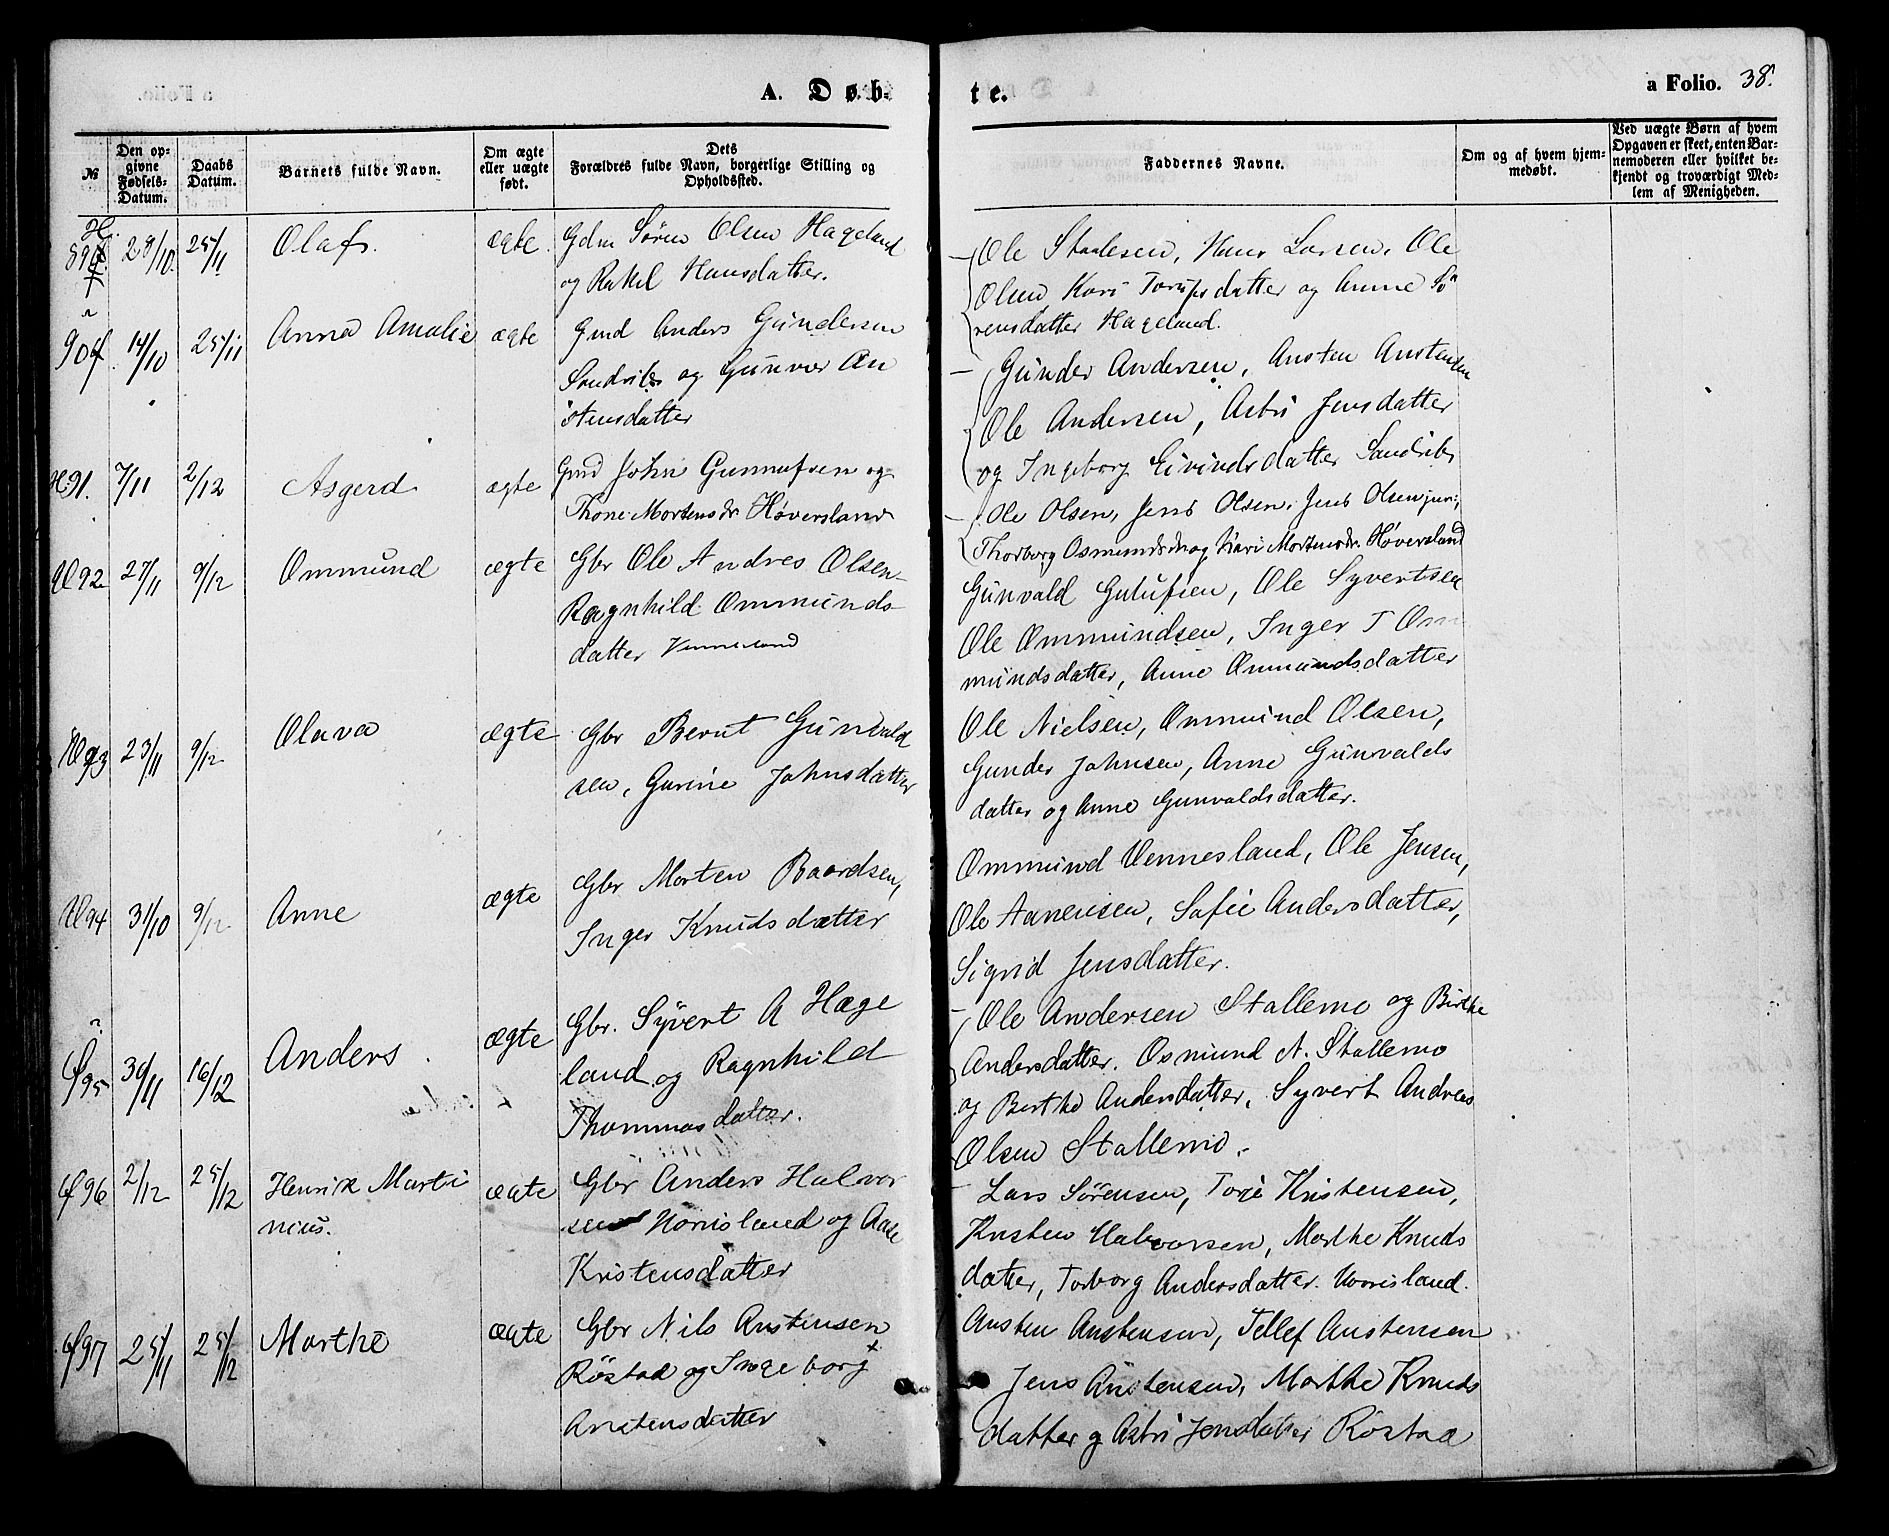 A. Døb-
te.
a Folio. 38.
№
Den op-
givne
Fødsels-
Datum.
Daabs
Datum.
Barnets fulde Navn.
Om ægte
eller uægte
født.
Dets
Forældres fulde Navn, borgerlige Stilling og
Opholdssted.
Faddernes Navne.
Om og af hvem hjem-
medøbt.
Ved uægte Børn af hvem
Opgaven er skeet, enten Bar-
nemoderen eller hvilket be-
kjendt og troværdigt Med-
lem af Menigheden.
28/10. 25/11 Olaf. ægte. Gdm Sören Olsen Hageland
og Rakel Hansdatter.
Ole Staalesen, Hans Larsen, Ole
Olsen Kari Torjusdatter og Anne Sö
rensdatter Hageland.
90 14/10 25/11 Anna Amalie ægte Gmd Anders Gundersen
Sandrib og Gunvor An
stensdatter
Gunder Andersen, Ansten Anstensen
Ole Andersen, Asbri Jensdatter
og Ingeborg Eivindsdatter Sandrib
91. 7/11 2/12 Asgerd ægte Gmd John Gunnufsen og
Thone Mortensdr. Høversland
Ole Olsen, Jens Olsen, Jens Olsen jun:,
Thorborg Osmundsdr og Kari Mortensdr. Høversland
92 27/11 9/12 Ommund ægte Gbr Ole Andres Olsen
Ragnhild Ommunds-
datter Vennesland
Gunvald Gulufsen, Ole Syvertsen
Ole Ommundsen, Inger T Om
mundsdatter, Anne Ommundsdatter
93 23/11 9/12 Olava ægte Gbr Bernt Gunvald
sen, Gurine Johnsdatter
Ole Nielsen, Ommund Olsen,
Gunder Johnsen, Anne Gunvalds
datter og Anne Gunvaldsdatter.
94 31/10 9/12 Anne ægte Gbr Morten Baardsen,
Inger Knudsdatter
Ommund Vennesland, Ole Jensen,
Ole Aanensen, Safie Andersdatter,
Sigrid Jensdatter.
95 30/11 16/12 Anders. ægte Gbr. Syvert A Hage
land og Ragnhild
Thommasdatter.
Ole Andersen Stallemo og Birthe
Andersdatter. Osmund N. Stallemo
og Birthe Andersdatter, Syvert Andreas
Olsen Stallemo.
96 2/12 25/12 Henrik Marti
nius. ægte Gbr Anders Halvor
sen Horrisland og Aase
Kristensdatter
Lars Sörensen, Torje Kristensen,
Kristen Halvorsen, Marthe Knuds
datter, Torborg Andersdatter. Horrisland.
97 25/11 25/12 Marthe ægte Gbr Nils Anstensen
Röstad og Ingeborg
Anstensdatter
Ansten Anstensen, Tellef Anstensen
Jens Anstensen, Marthe Knuds
datter og Asbri Jensdatter Röstad